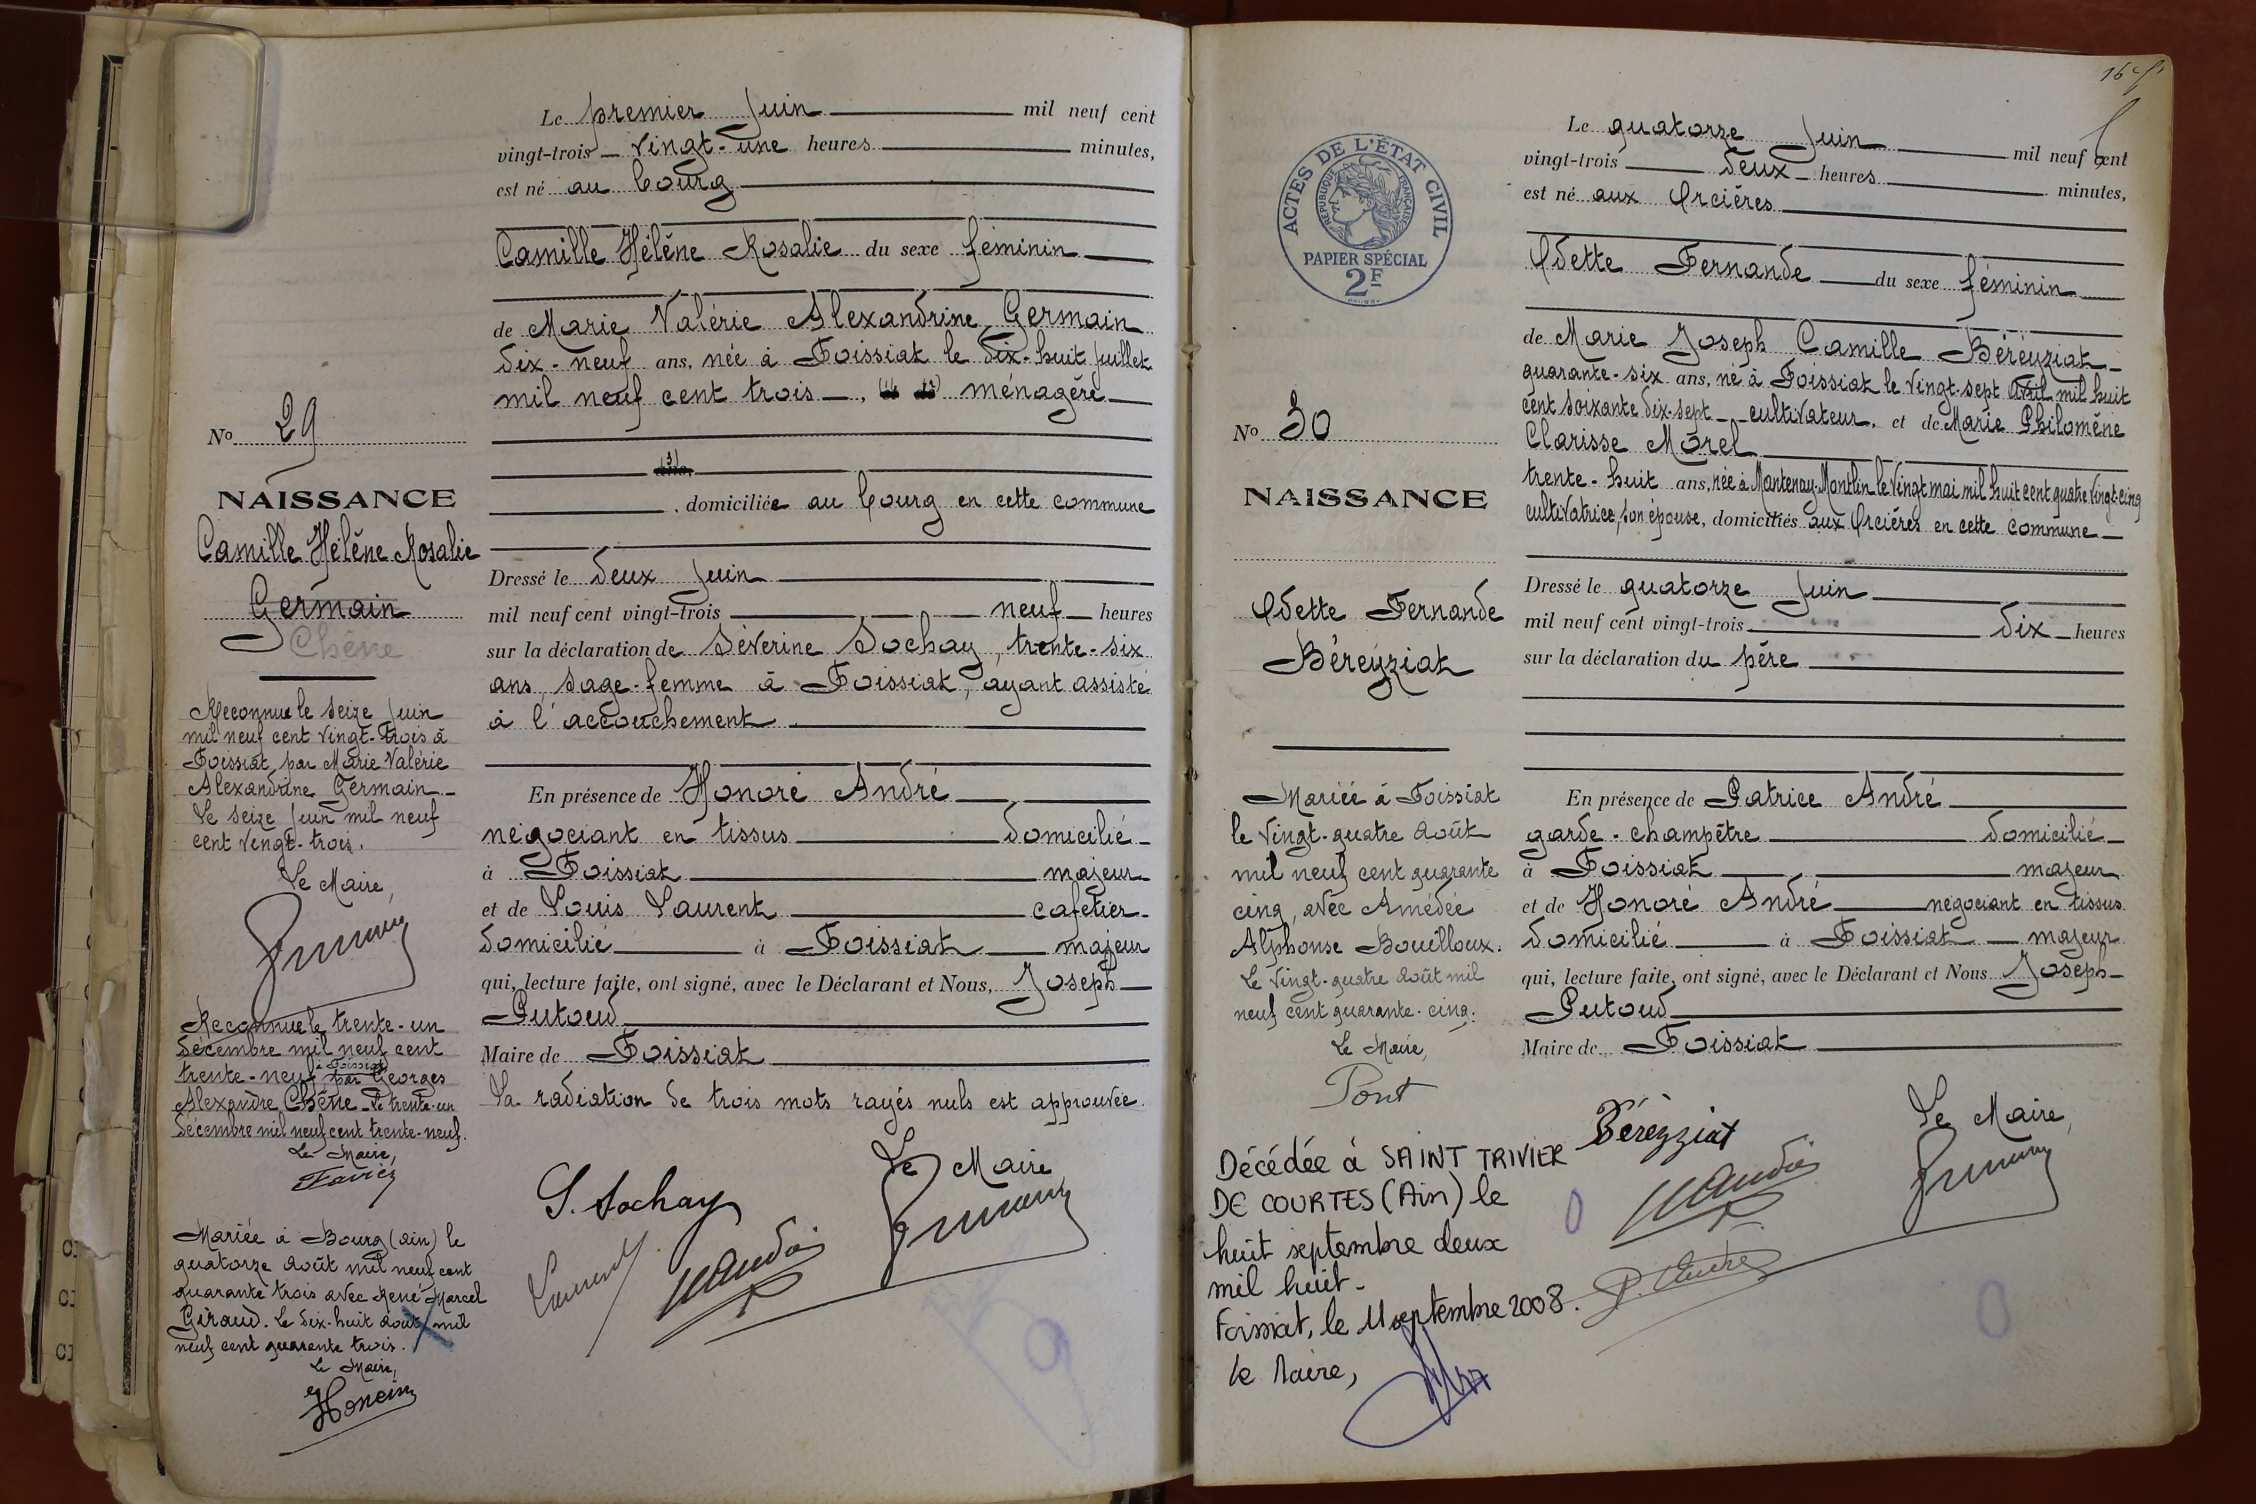 Le premier Juin mil neuf cent
vingt-trois vingt-une heures minutes,
est né au bourg
Camille Hélène Rosalie du sexe féminin
de Marie Valérie Alexandrine Germain
dix-neuf ans, née à Foissiat le dix-huit Juillet
mil neuf cent trois, ménagère
domiciliée au bourg en cette commune
Dressé le deux Juin
mil neuf cent vingt-trois neuf heures
sur la déclaration de Séverine Sochay, trente-six
ans, sage-femme à Foissiat, ayant assisté
à l'accouchement
En présence de Honoré André
négociant en tissus domicilié
à Foissiat majeur
et de Louis Laurent cafetier
domicilié à Foissiat majeur
qui, lecture faite, ont signé, avec le Déclarant et Nous, Joseph
Putoud
Maire de Foissiat
La radiation de trois mots rayés nuls est approuvée.
Le Maire
S. Sochay
Laurent
No 29
NAISSANCE
Camille Hélène Rosalie
Germain
Chêne
Reconnue le seize Juin
mil neuf cent vingt-trois à
Foissiat par Marie Valérie
Alexandrine Germain
Le seize Juin mil neuf
cent vingt-trois.
Le Maire,
Reconnue le trente-un
décembre mil neuf cent
à Foissiat
trente-neuf par Georges
Alexandre Chêne Le trente-un
décembre mil neuf cent trente-neuf.
Le Maire,
Mariée à Bourg (Ain) le
quatorze août mil neuf cent
quarante trois avec René Marcel
Giraud. Le dix-huit août mil
neuf cent quarante trois.
Le Maire,
16
Le quatorze Juin mil neuf cent
vingt-trois deux heures minutes,
est né aux Orcières
Odette Fernande du sexe féminin
de Marie Joseph Camille Béréyziat
quarante-six ans, né à Foissiat le vingt-sept avril mil huit
cent soixante dix-sept cultivateur, et de Marie Philomène
Clarisse Morel
trente-huit ans, née à Mantenay-Montlin le vingt mai mil huit cent quatre vingt-cinq
cultivatrice, son épouse, domiciliés aux Orcières en cette commune
Dressé le quatorze Juin
mil neuf cent vingt-trois dix heures
sur la déclaration du père
En présence de Patrice André
garde-champêtre domicilié
à Foissiat majeur
et de Honoré André négociant en tissus
domicilié à Foissiat majeur
qui, lecture faite, ont signé, avec le Déclarant et Nous Joseph
Putoud
Maire de Foissiat
Le Maire,
Béréyziat
H André
P. André
ACTES DE L'ÉTAT CIVIL
RÉPUBLIQUE FRANÇAISE
PAPIER SPÉCIAL
2F
No 30
NAISSANCE
Odette Fernande
Béreyziat
Mariée à Foissiat
le vingt-quatre août
mil neuf cent quarante
cinq, avec Amédée
Alphonse Bouilloux.
Le vingt-quatre août mil
neuf cent quarante-cinq.
Le Maire,
Pont
Décédée à SAINT TRIVIER
DE COURTES (Ain) le
huit septembre deux
mil huit.
Foissiat, le 11 septembre 2008.
Le Maire,